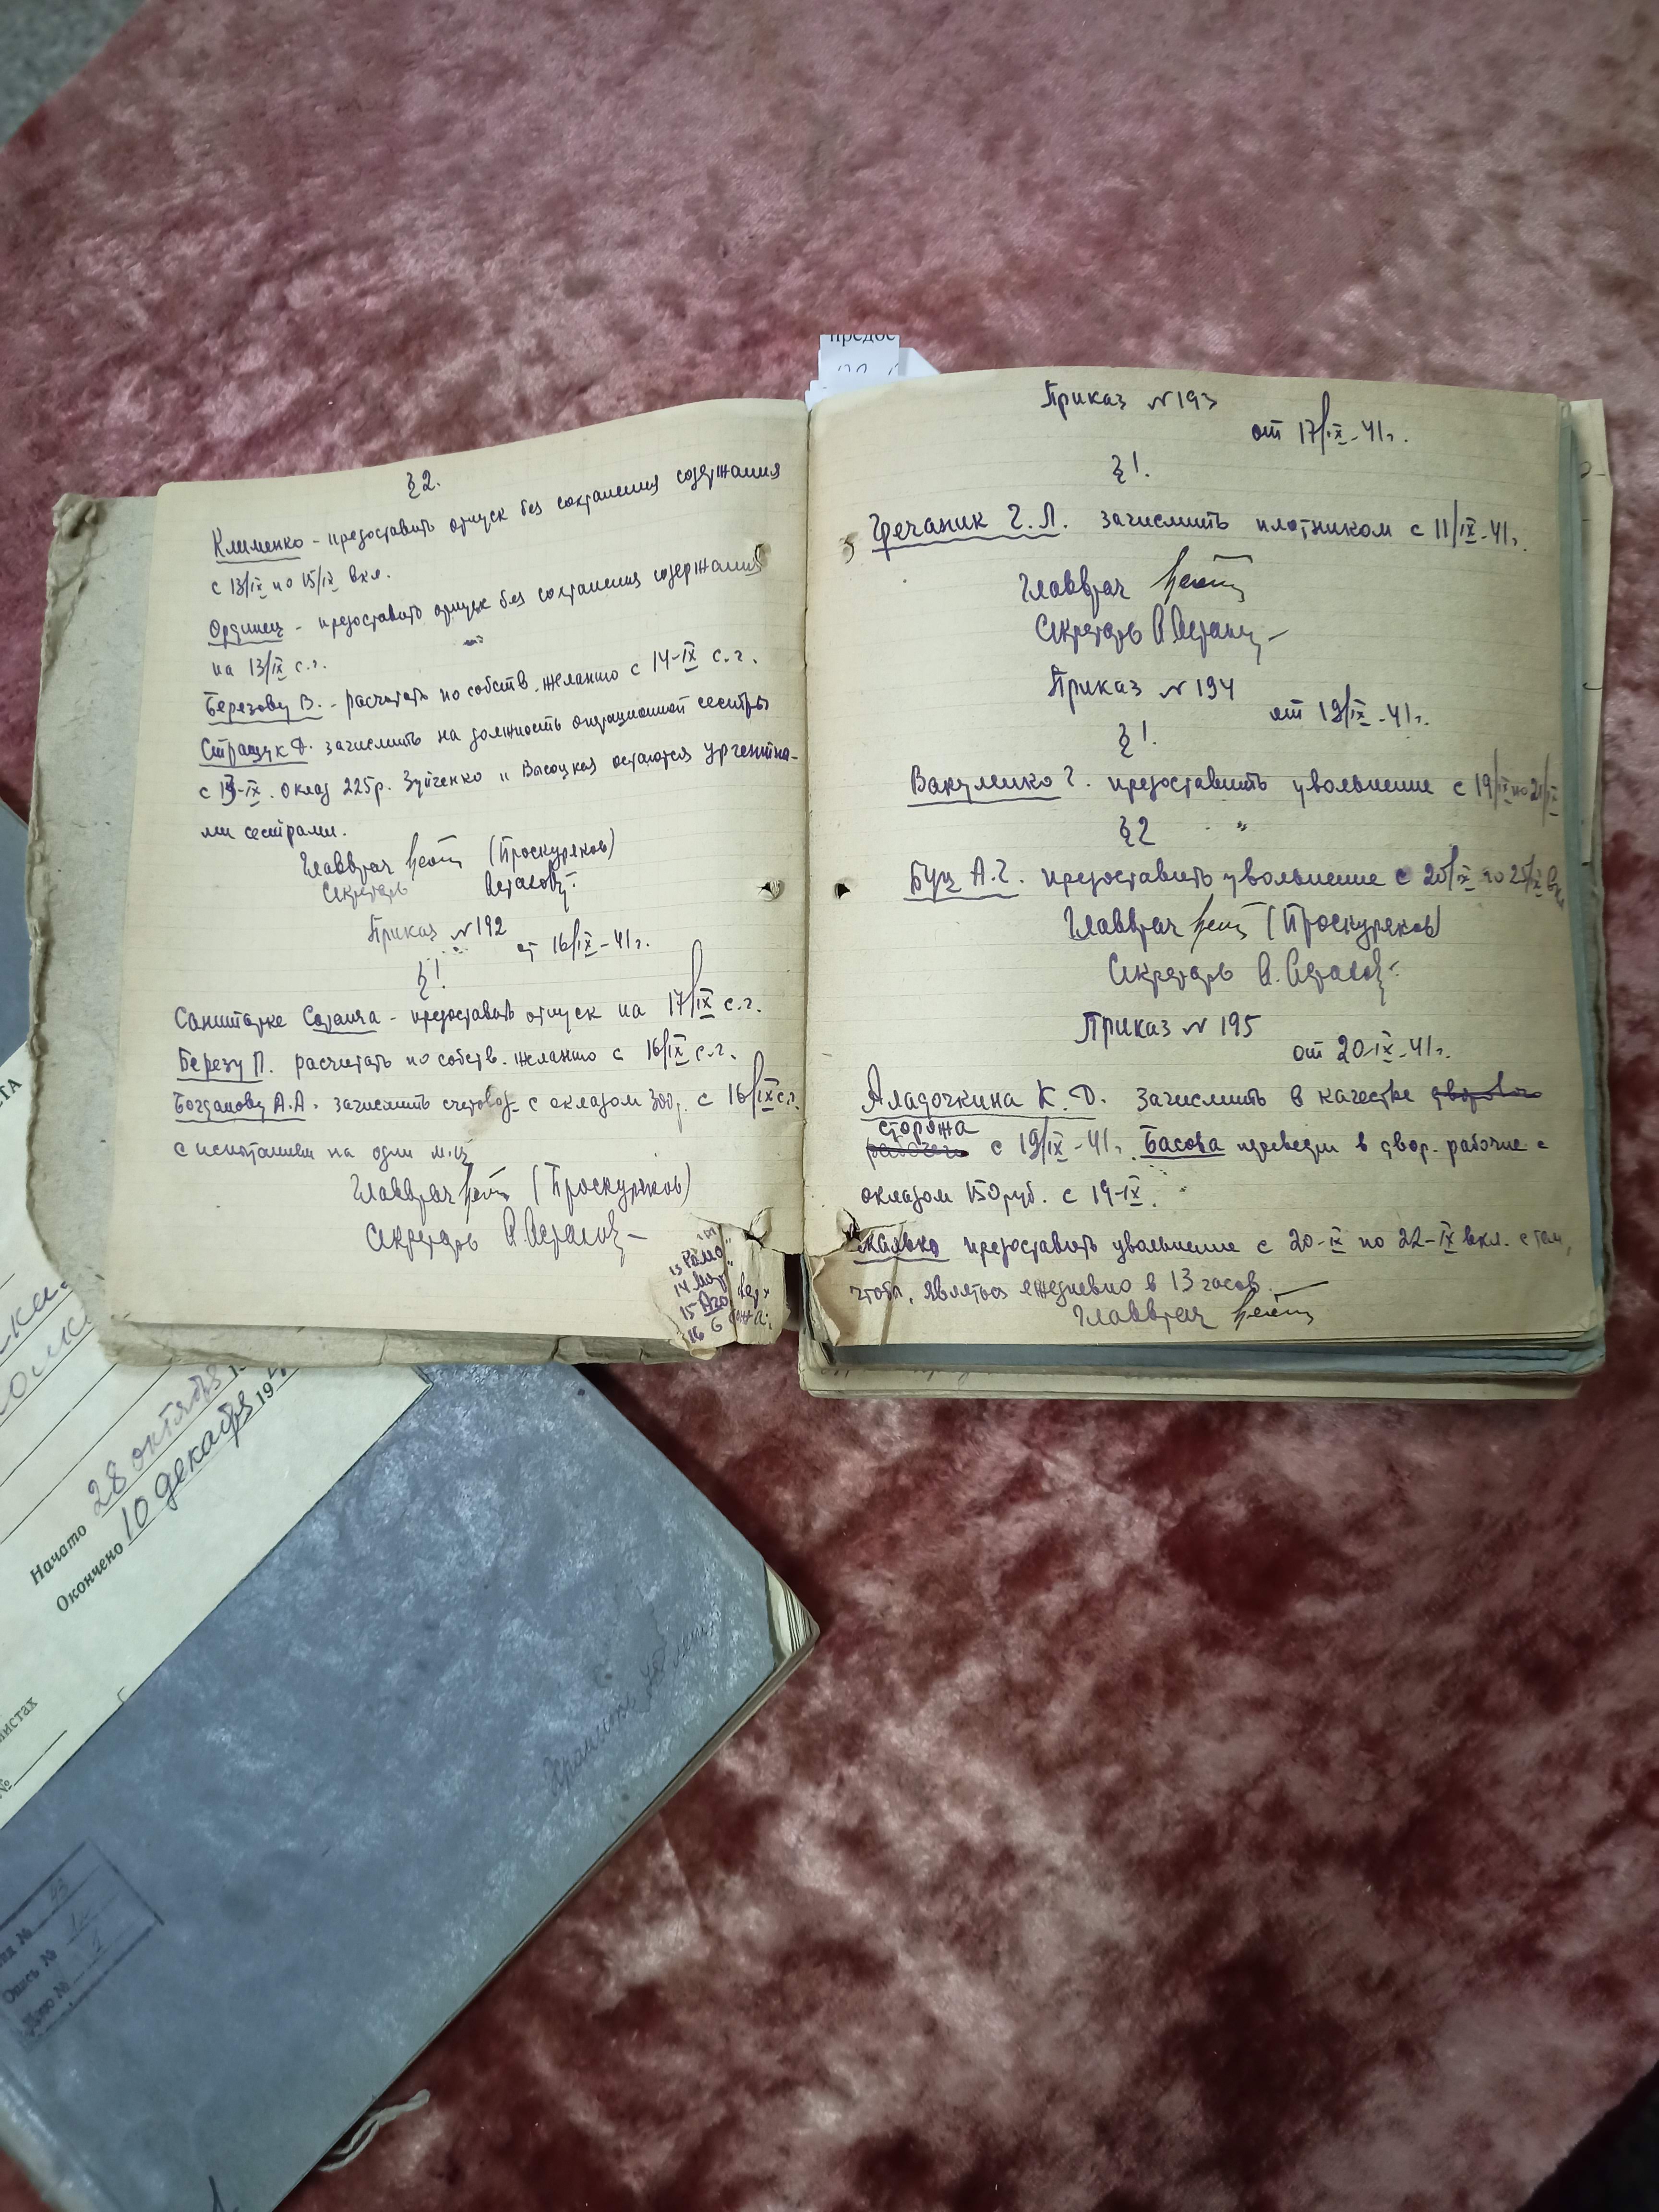 §2.
Клименко - предоставить отпуск без сохранения содержания
с 13/IX по 15/IX вкл.
Ординец - предоставить отпуск без сохранения содержания
на 13/IX с.г.
Березову В. - расчитать по собств. желанию с 14-IX с.г.
Стращук Д. зачислить на должность операционной сестры
с IX. оклад 225р. Зуйченко и Высоцкая остаются ургентна-
ми сестрами.
Главврач (Проскуряков)
Секретарь Асталов
Приказ №192
от 16/IX-41г.
§1
Санитарке - предоставить отпуск на 17/IX с.г.
Березу П. расчитать по собств. желанию с 16/IX с.г.
Богданову А.А. зачислить счетовод. с окладом 300р. с 16/IX с.г.
с испытанием на один м-ц
Главврач (Проскуряков)
Секретарь А. Асталов
13
14
15
16
предос
Приказ №193
от 17/IX-41г.
§1.
Гречаник Г.Л. зачислить плотником с 11/IX-41г.
Главврач
Секретарь
Приказ №194
от 19/IX-41г.
§1.
Вакуленко Г. предоставить увольнение с 19/IX по 21/IX
§2
Буц А.Г. предоставить увольнение с 20/IX по 25/IX вкл
Главврач (Проскуряков)
Секретарь А. Асталов
Приказ №195
от 20-IX-41г.
Аладочкина К.Д. зачислить в качестве
сторожа
с 19/IX-41г. Басова переведен в двор. рабочие с
окладом 150руб. с 19-IX.
предоставить увольнение с 20-IX по 22-IX вкл. с тем,
чтоб. являться ежедневно в 13 часов.
Главврач
Начато 28 октября 19
Окончено 10 декабря 19
листах
№
Хранить
Опись №
Дело №